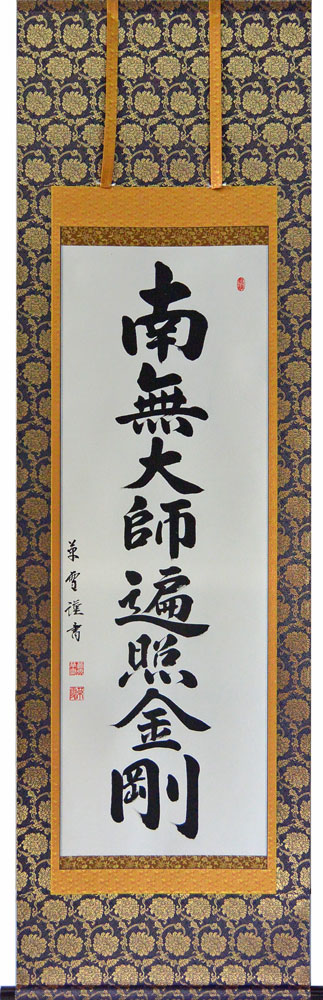 南無大師遍照金剛
謹書